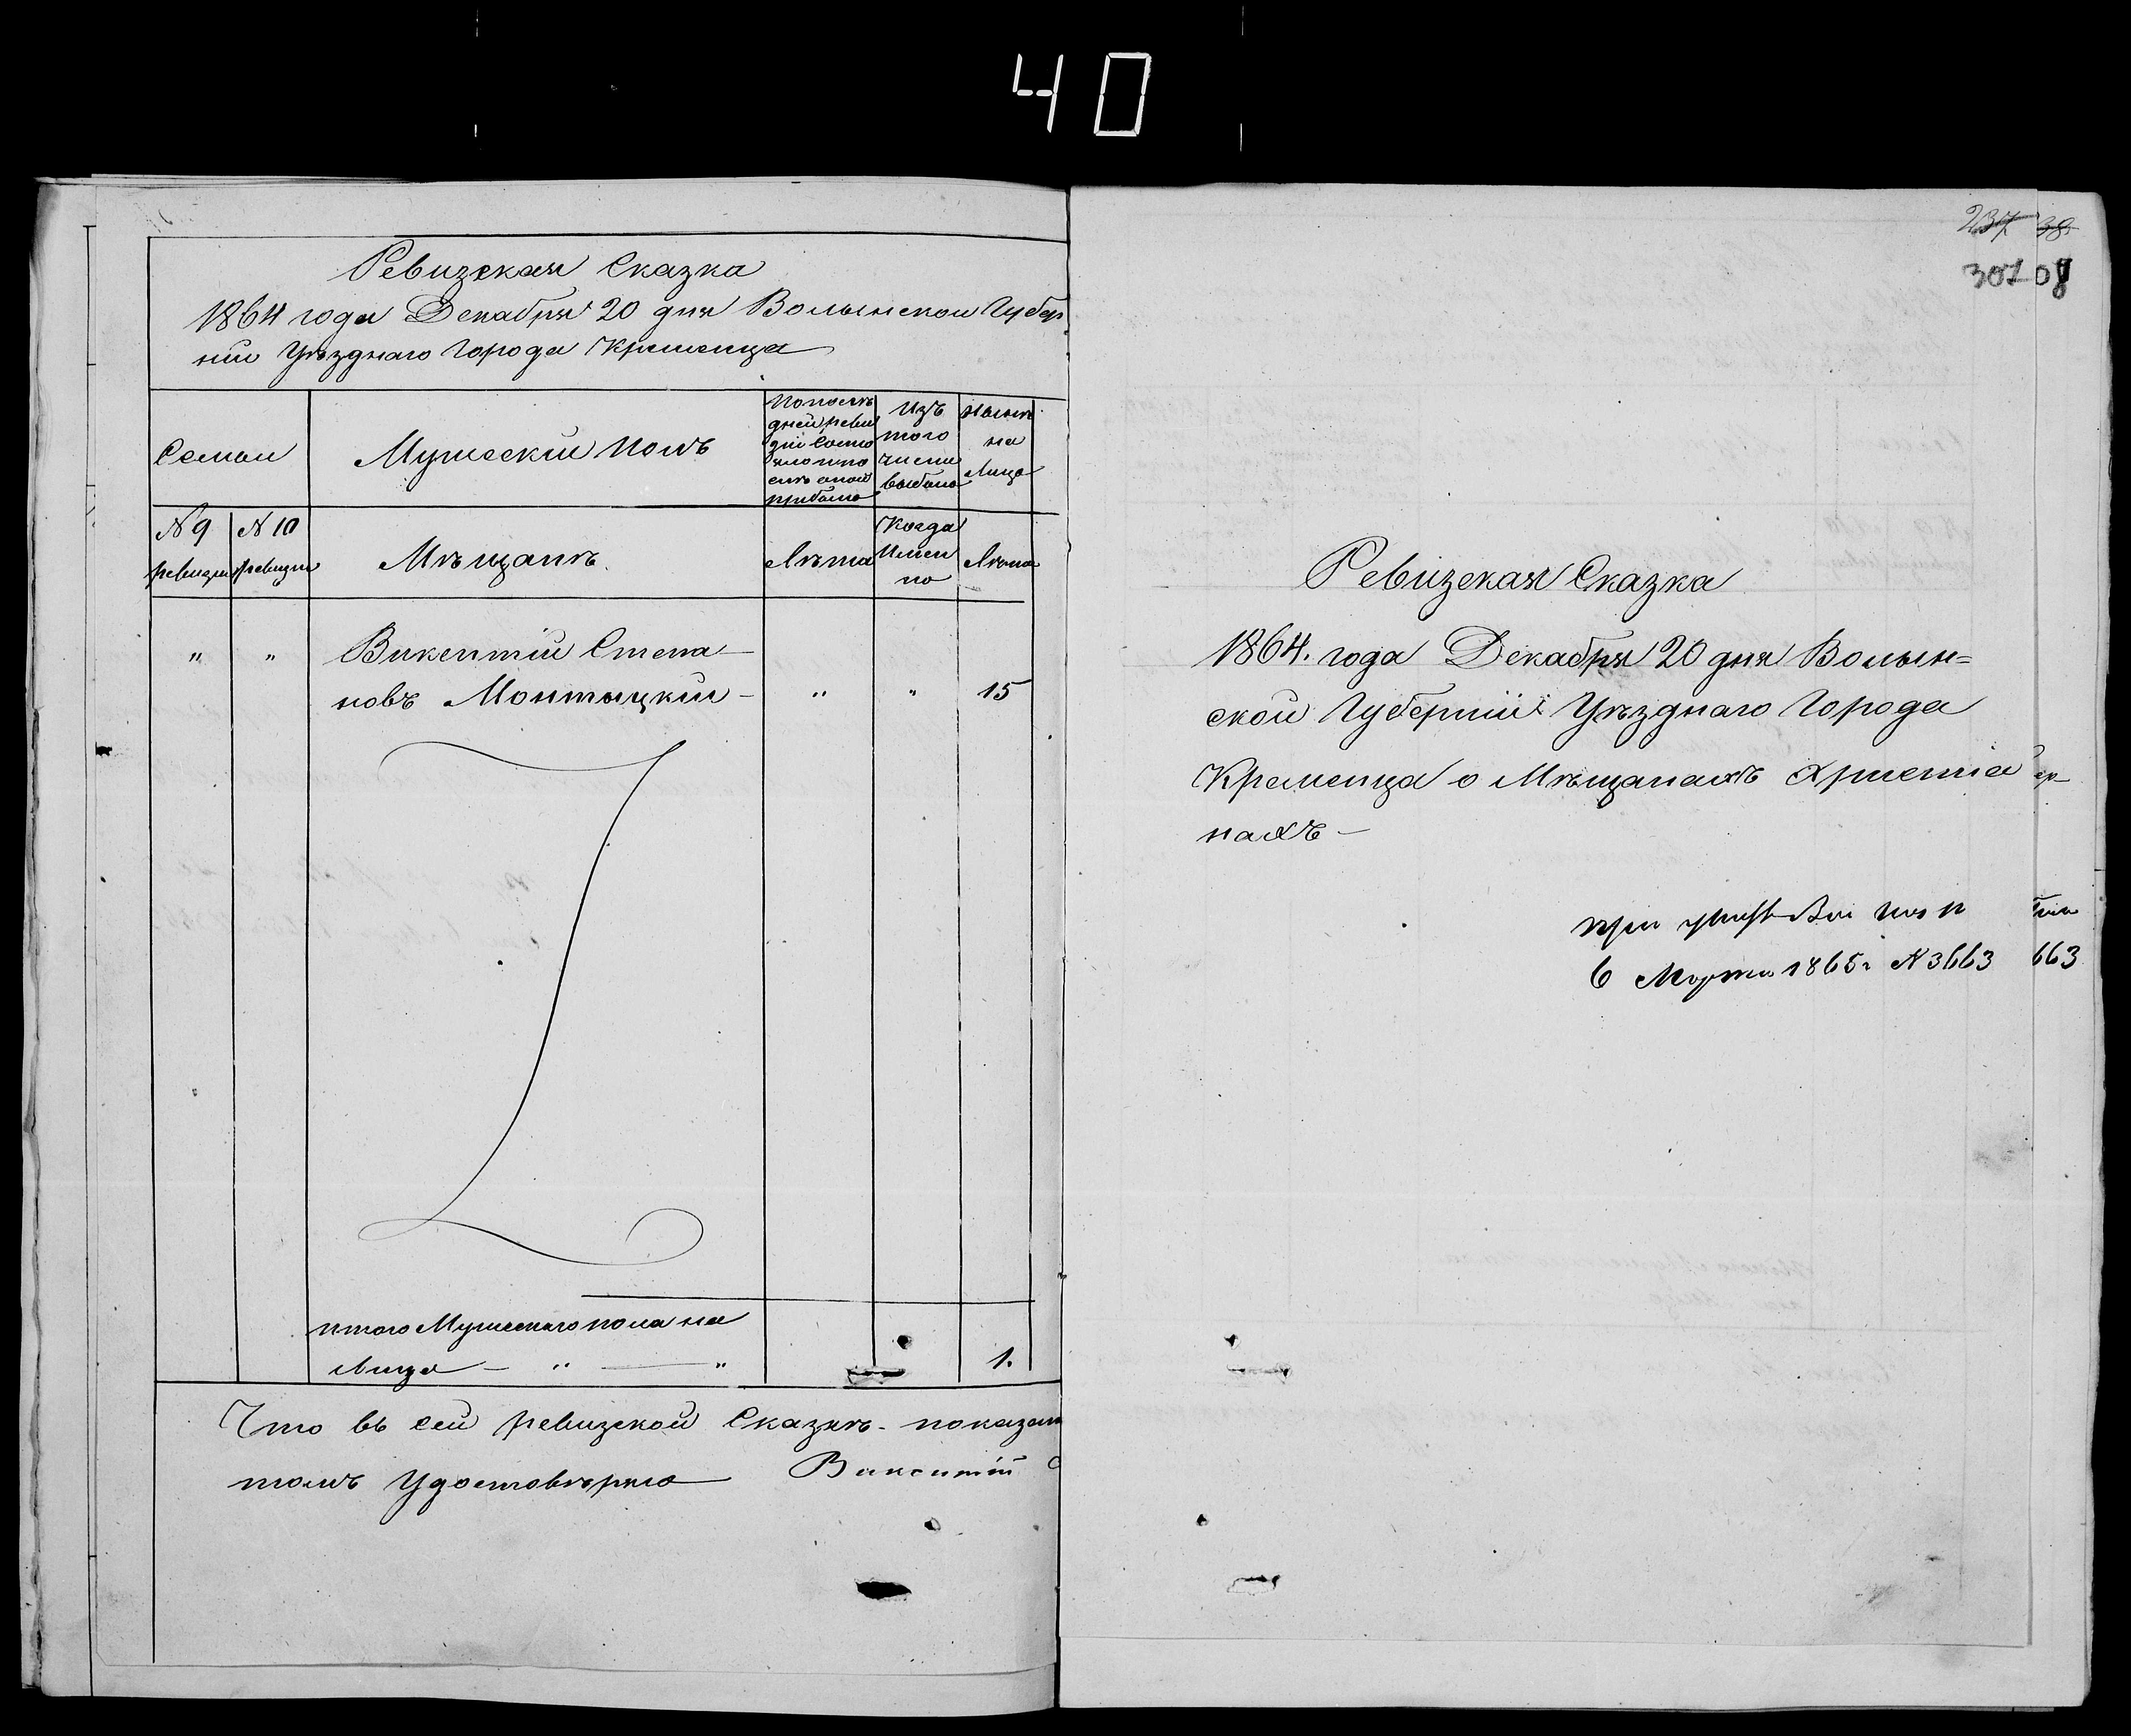 40
Ревизская Сказка
1864 года Декабря 20 дня Волынской Губер
нии Уѣзднаго Города Кременца
Семьи
Мужескій полъ
По послѣ
дней реви
зіи состо
яло и по
слѣ оной
прибыло
Изъ
того
числа
выбыло
Нынѣ
на
Лицо
№ 9
ревизіи
№ 10
ревизіи
Мѣщанъ.
Лѣта
Когда
Имен
но
Лѣта
" " Викентій Степа-
новъ Монтыцкій - " " 15
итого Мужескаго пола на
лицо - " — " 1.
Что въ сей ревизской Сказкѣ - показан
томъ Удостовѣряю Викентій С
237 38
307 08
Ревизская Сказка
1864. года Декабря 20 дня Волын=
ской Губерніи Уѣзднаго Города
Кременца о Мѣщанахъ Христіа
нахъ -
при
6 Марта 1865 г № 3663 663